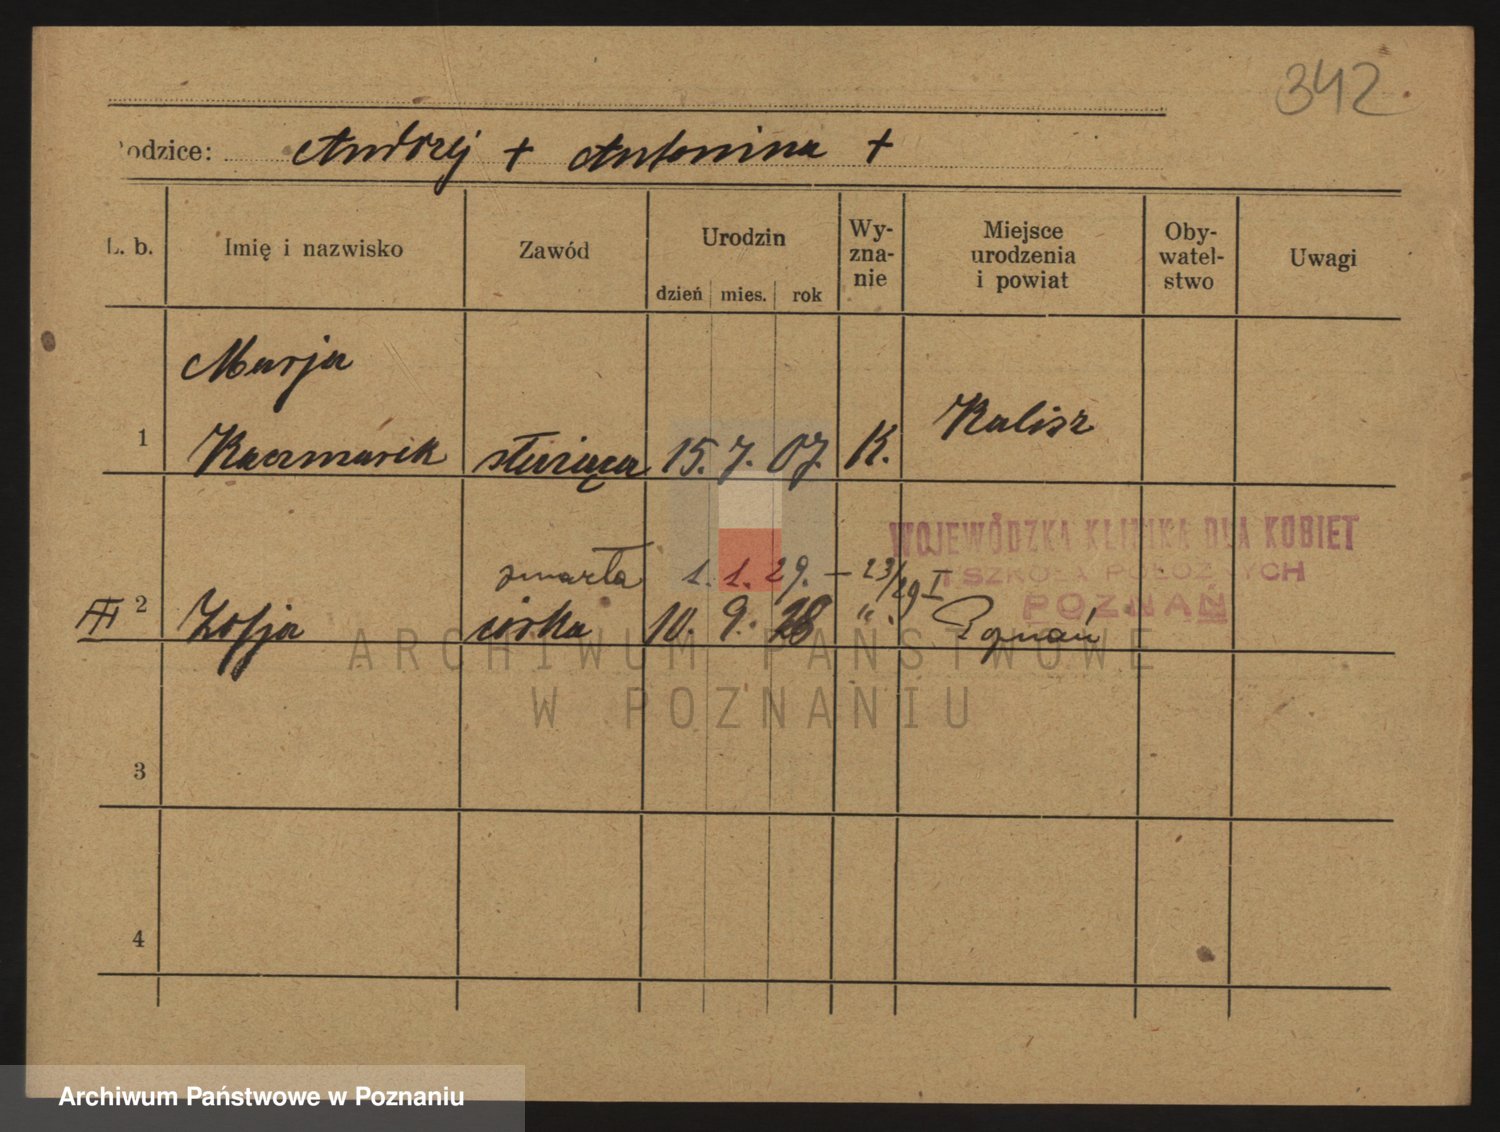 342
Rodzice: Andrzej + Antonina +
L. b. Imię i nazwisko Zawód Urodzin dzień mies. rok Wy-zna-nie Miejsce urodzenia i powiat Oby-watel-stwo Uwagi
Marja
1 Kaczmarek służąca 15. 7. 07. K. Kalisz
WOJEWÓDZKA KLINIKA DLA KOBIET
I SZKOŁA POŁOŻNYCH
POZNAŃ
zmarła 1. 1. 29. – 23/29 I
III 2 Zofja córka 10. 9. 28 " . Poznań
3
4
ARCHIWUM PAŃSTWOWE
W POZNANIU
Archiwum Państwowe w Poznaniu